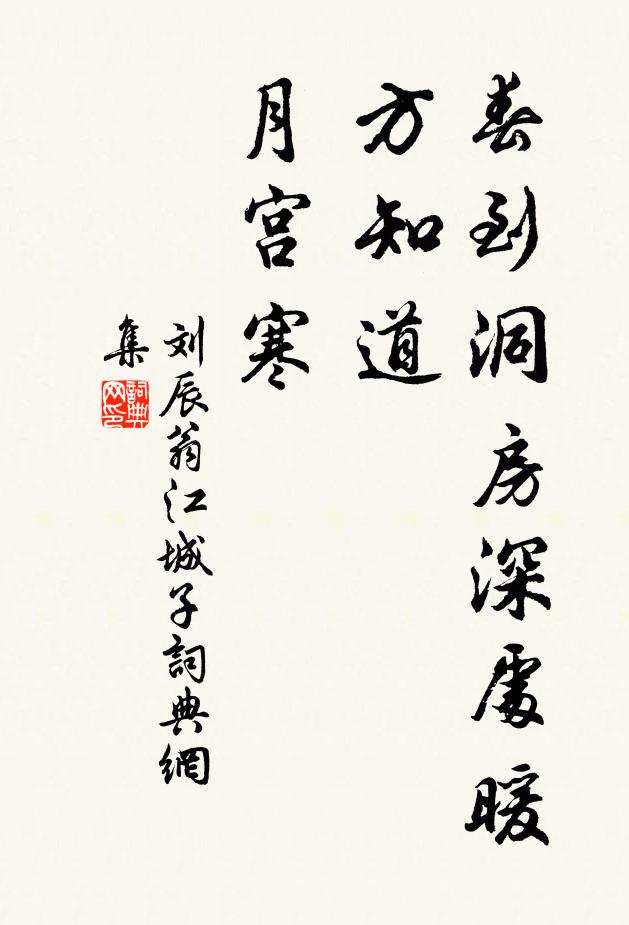 春到洞房深處暖
方知道
月宫寒
刘辰翁江城子詞典網
集
詞典
网印